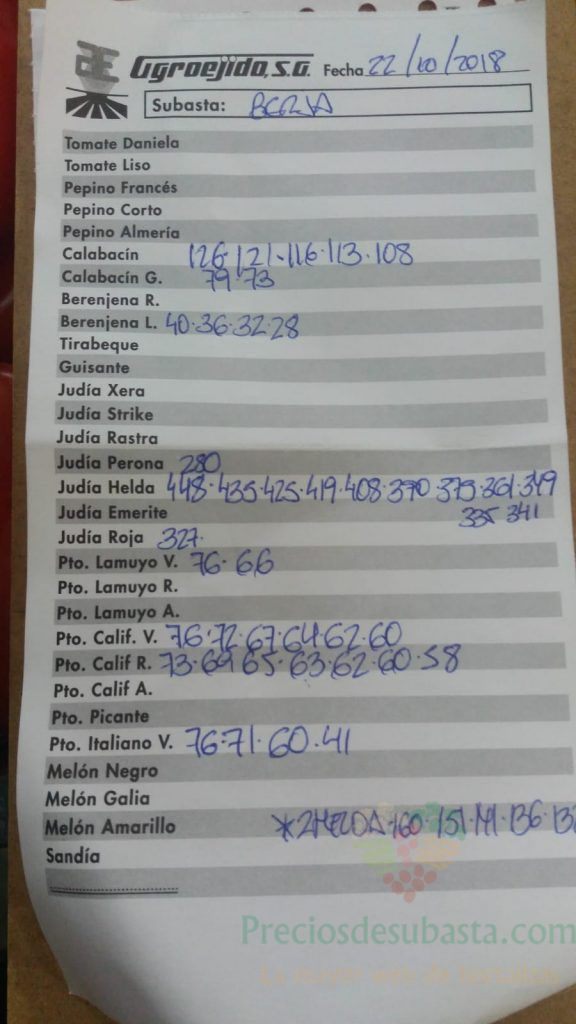 Agroejido, S.A. Fecha 22/10/2018
Subasta: BERJA
Tomate Daniela
Tomate Liso
Pepino Francés
Pepino Corto
Pepino Almería
Calabacín 126·121·116·113·108
Calabacín G. 79·73
Berenjena R.
Berenjena L. 40·36·32·28
Tirabeque
Guisante
Judía Xera
Judía Strike
Judía Rastra
Judía Perona 280
Judía Helda 448·435·425·419·408·390·375·361·349
Judía Emerite 335 341
Judía Roja 327·
Pto. Lamuyo V. 76·66
Pto. Lamuyo R.
Pto. Lamuyo A.
Pto. Calif. V. 76·72·67·64·62·60
Pto. Calif R. 73·69 65·63·62·60·58
Pto. Calif A.
Pto. Picante
Pto. Italiano V. 76·71·60·41
Melón Negro
Melón Galia
Melón Amarillo *2HELDA·160·151·141·136·132
Sandía
Preciosdesubasta.com
La mayor web de